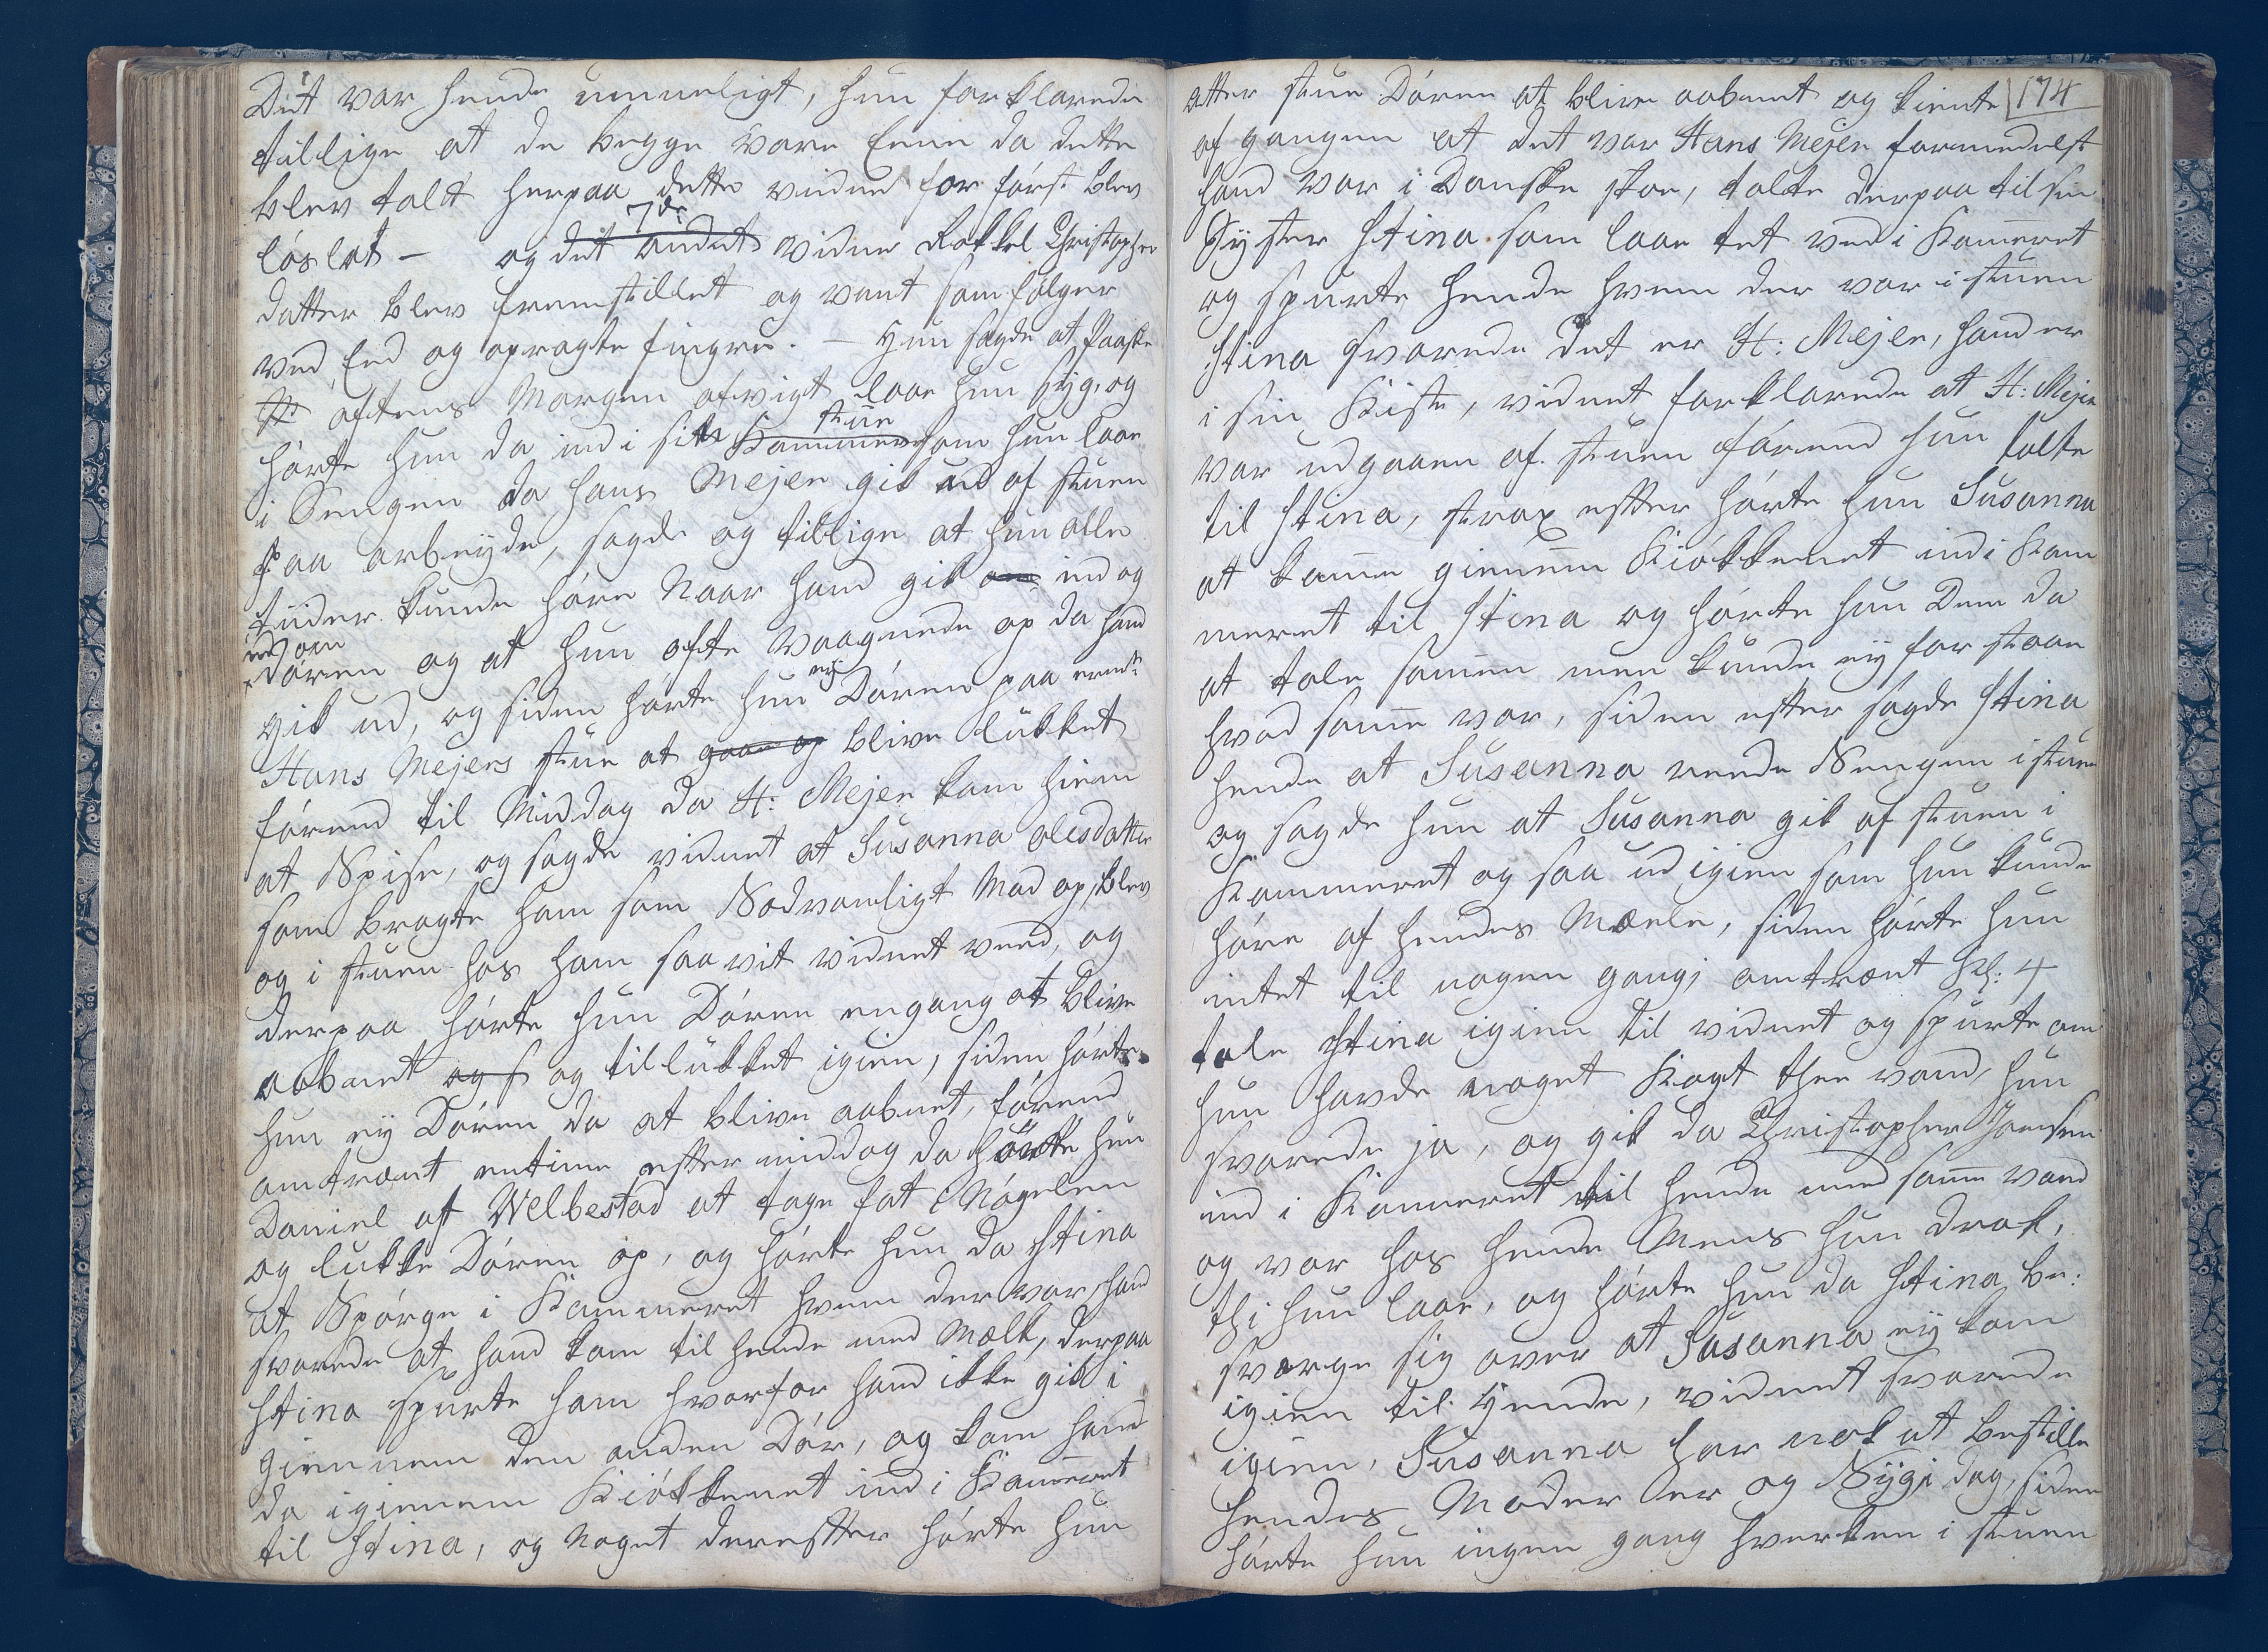 Det var hende umueligt, hun forklarede
tillige at de begge vare Eenie da dette
blev talt herpaa dette vidne for først blev
løslat – og det andet 7de vidne Rakkel Christopher
datter blev fremstillet og vant som følger
ved Eed og opragte fingre. – Hun sagde at Paaske
aftens Morgen afvigt laae hun syg, og
hørte hun da ind i sin Kammer stue som hun laae
i Sengen da Hans Mejer gik ud af stuen
paa arbeyde, sagde og tillige at hun alle
tiider kunde høre Naar hand gik om ind og
ud om
Døren og at hun ofte vaagnede op da hand
gik ud, og siden hørte hun ey Døren paa
Hans Mejers stue at gaae op blive lukket
førend til Middag da H: Mejer kom hiem
at Spise, og sagde vidnet at Susanna olesdatter
som bragte ham som Sædvanligt Mad op, blev
og i stuen hos ham saa vit vidnet veed, og
derpaa hørte hun Døren engang at blive
aabnet og s og tillukket igien, siden hørte
hun ey Døren da at blive aabnet, førend
omtrænt entime effter middag da hørte hun
Daniel af Welbestad at tage fat i Nøgelen
og lukke Døren op, og hørte hun da Stina
at Spørge i Kammeret hvem der var, hand
svarede at hand kom til hende med Mælk, derpaa
Stina spurte ham hvorfor hand ikke gik i
giennem den anden Dør, og kom hand
da igiennem Kiøkkenet ind i Kameret
til Stina, og Noget dereffter hørte hun
atter stue Døren at blive aabnet og kiente 174
af gangen at det var Hans Mejer formedelst
hand var i Danske skoe, talte derpaa til sin
Syster Stina som laae tet ved i Kameret
og spurte hende hvem der var i stuen
Stina svarede det er H: Mejer, hand er
i sin Kiste, vidnet forklarede at H: Mejer
var udgaaen af stuen førend hun talte
til Stina, strax effter hørte hun Susanna
at kame gienem Kiøkkenet ind i Kam
meret til Stina og hørte hun Dem da
at tale samen men kunde ey forstaae
hvad same var, siden effter sagde Stina
hende at Susanna reede Sengen i stuen
og sagde hun at Susanna gik af stuen i
Kammeret og saa ud igien som hun kunde
høre af hendes Mæele, siden hørte hun
intet til nogen gang, omtrænt Kl: 4
tale Stina igien til vidnet og spurte om
hun havde noget Kogt thee vand, hun
svarede ja, og gik da Christopher Jonsen
ind i Kameret til hende med same vand
og var hos hende Mens hun drak,
thi hun laae, og hørte hun da Stina be:
sværge sig over at Susanna ey kom
igien til Hende, vidnet svarede
igien, Susanna har nok at bestille
hendes Moder er og Syg i dag, siden
hørte hun ingen gang hverken i stuen